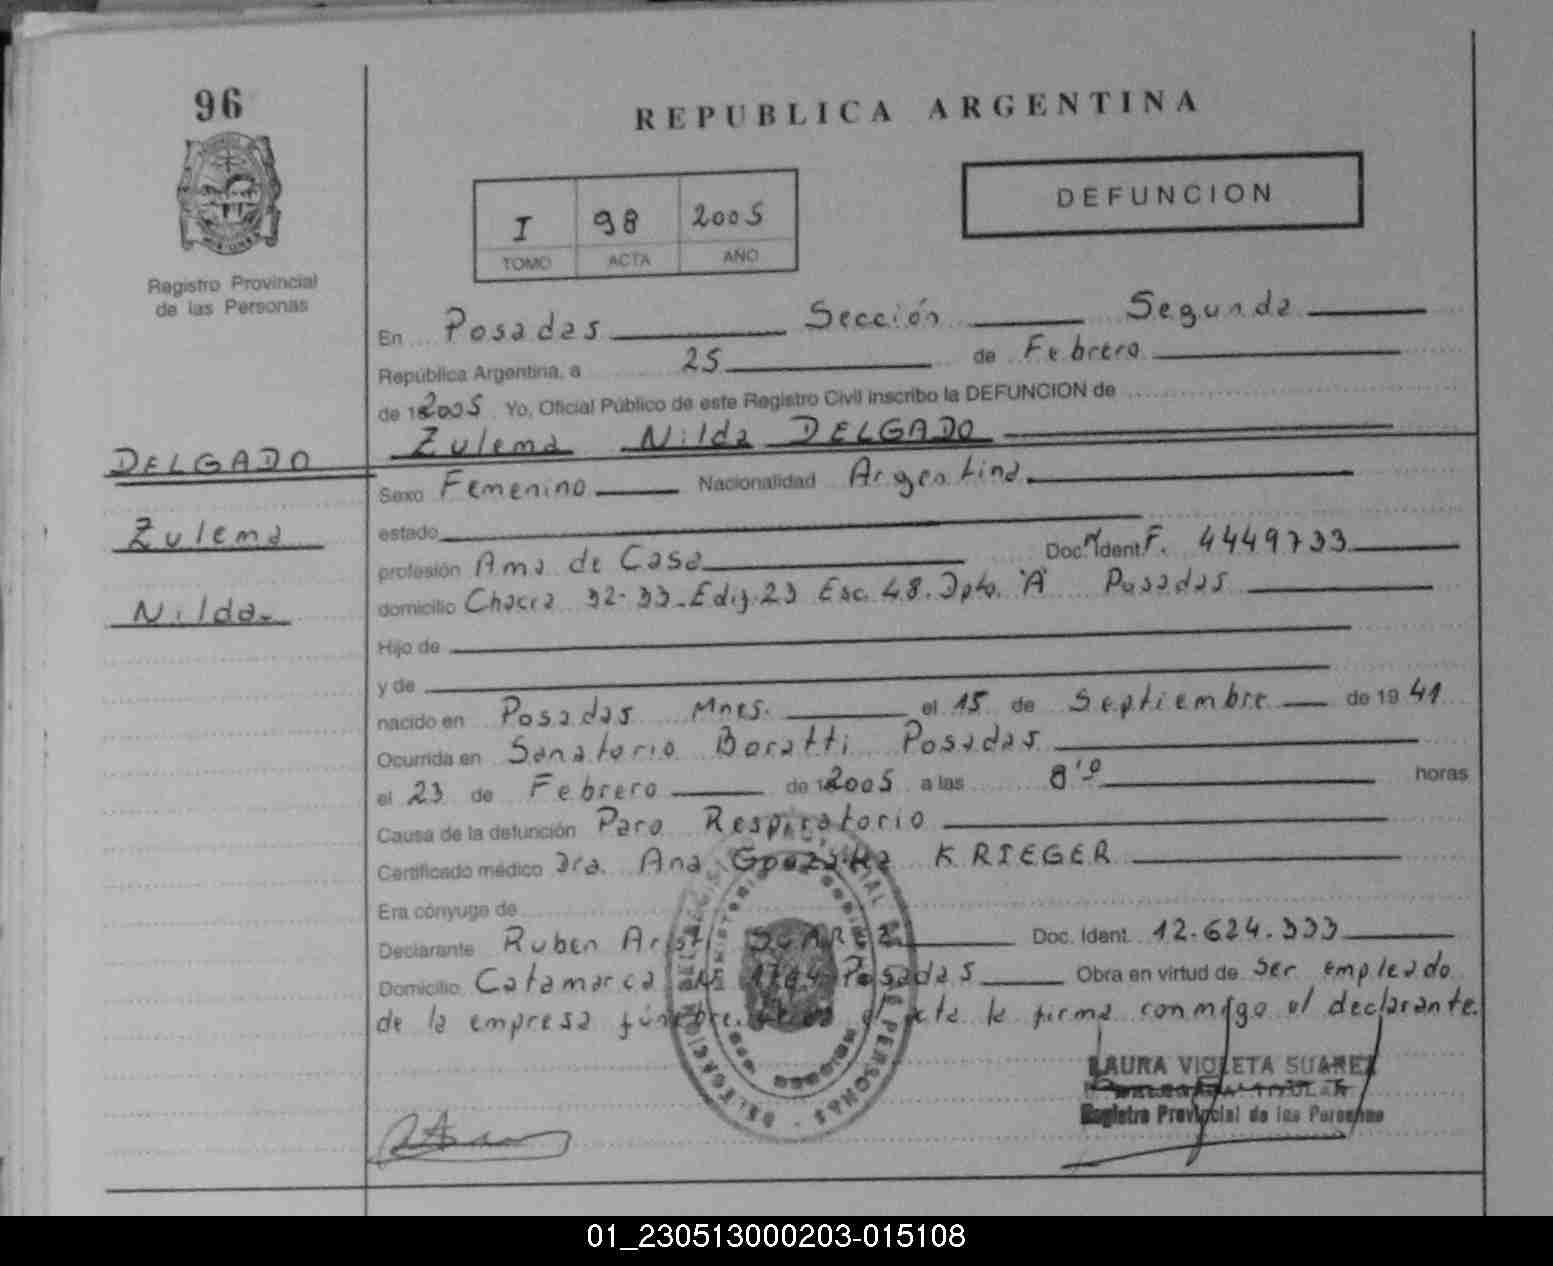 96
REPUBLICA ARGENTINA
DEFUNCION
I 98 2005
TOMO ACTA AÑO
Registro Provincial
de las Personas
En Posadas Sección Segunda
República Argentina, a 25 de Febrero
de 2005 Yo, Oficial Público de este Registro Civil inscribo la DEFUNCION de
Zulema Nilda DELGADO
DELGADO
Zulema
Nilda
Sexo Femenino Nacionalidad Argentina
estado
profesión Ama de Casa Doc. Ident. F. 4449733
domicilio Chacra 32-33-Edif.23 Esc. 48. Dpto. "A" Posadas
Hijo de
y de
nacido en Posadas Mnes. el 15 de Septiembre de 1941
Ocurrida en Sanatorio Boratti Posadas
el 23 de Febrero de 2005 a las horas
Causa de la defunción Paro Respiratorio
Certificado médico Dra. Ana KRIEGER
Era cónyuge de
Declarante Ruben Doc. Ident. 12.624.333
Domicilio Catamarca Posadas Obra en virtud de Ser empleado
de la empresa fúnebre. acta la firma conmigo el declarante.
LAURA VIOLETA SUAREZ
Registro Provincial de las Personas
01_230513000203-015108